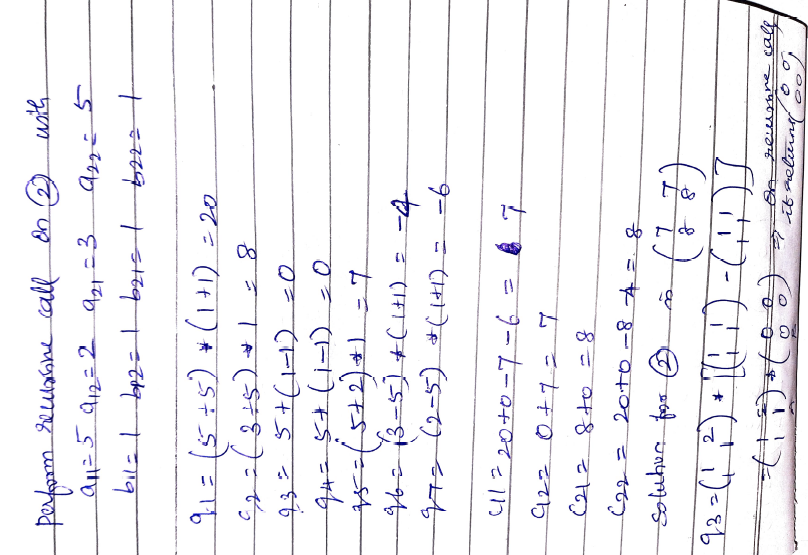 perform recursive call on ② with
a11=5 a12=2 a21=3 a22=5
b11=1 b12=1 b21=1 b22=1
q1 = (5+5) * (1+1) = 20
q2 = (3+5) * 1 = 8
q3 = 5*(1-1) = 0
q4 = 5*(1-1) = 0
q5 = (5+2)*1 = 7
q6 = (3-5)*(1+1) = -4
q7 = (2-5) *(1+1) = -6
c11 = 20+0-7-6 = 7
c12 = 0+7 = 7
c21 = 8+0 = 8
c22 = 20+0-8-4 = 8
solution for ② is (7 7
8 8)
q3 = (1 2
1 1) * [(1 1
1 1) - (1 1
1 1)]
= (1 2
1 1) * (0 0
0 0) ⇒ on recursive call
it returns (0 0
0 0)